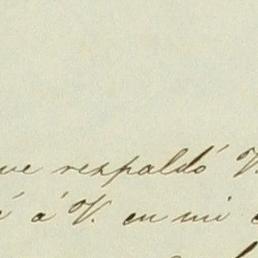 respaldó V.
á V. en mi